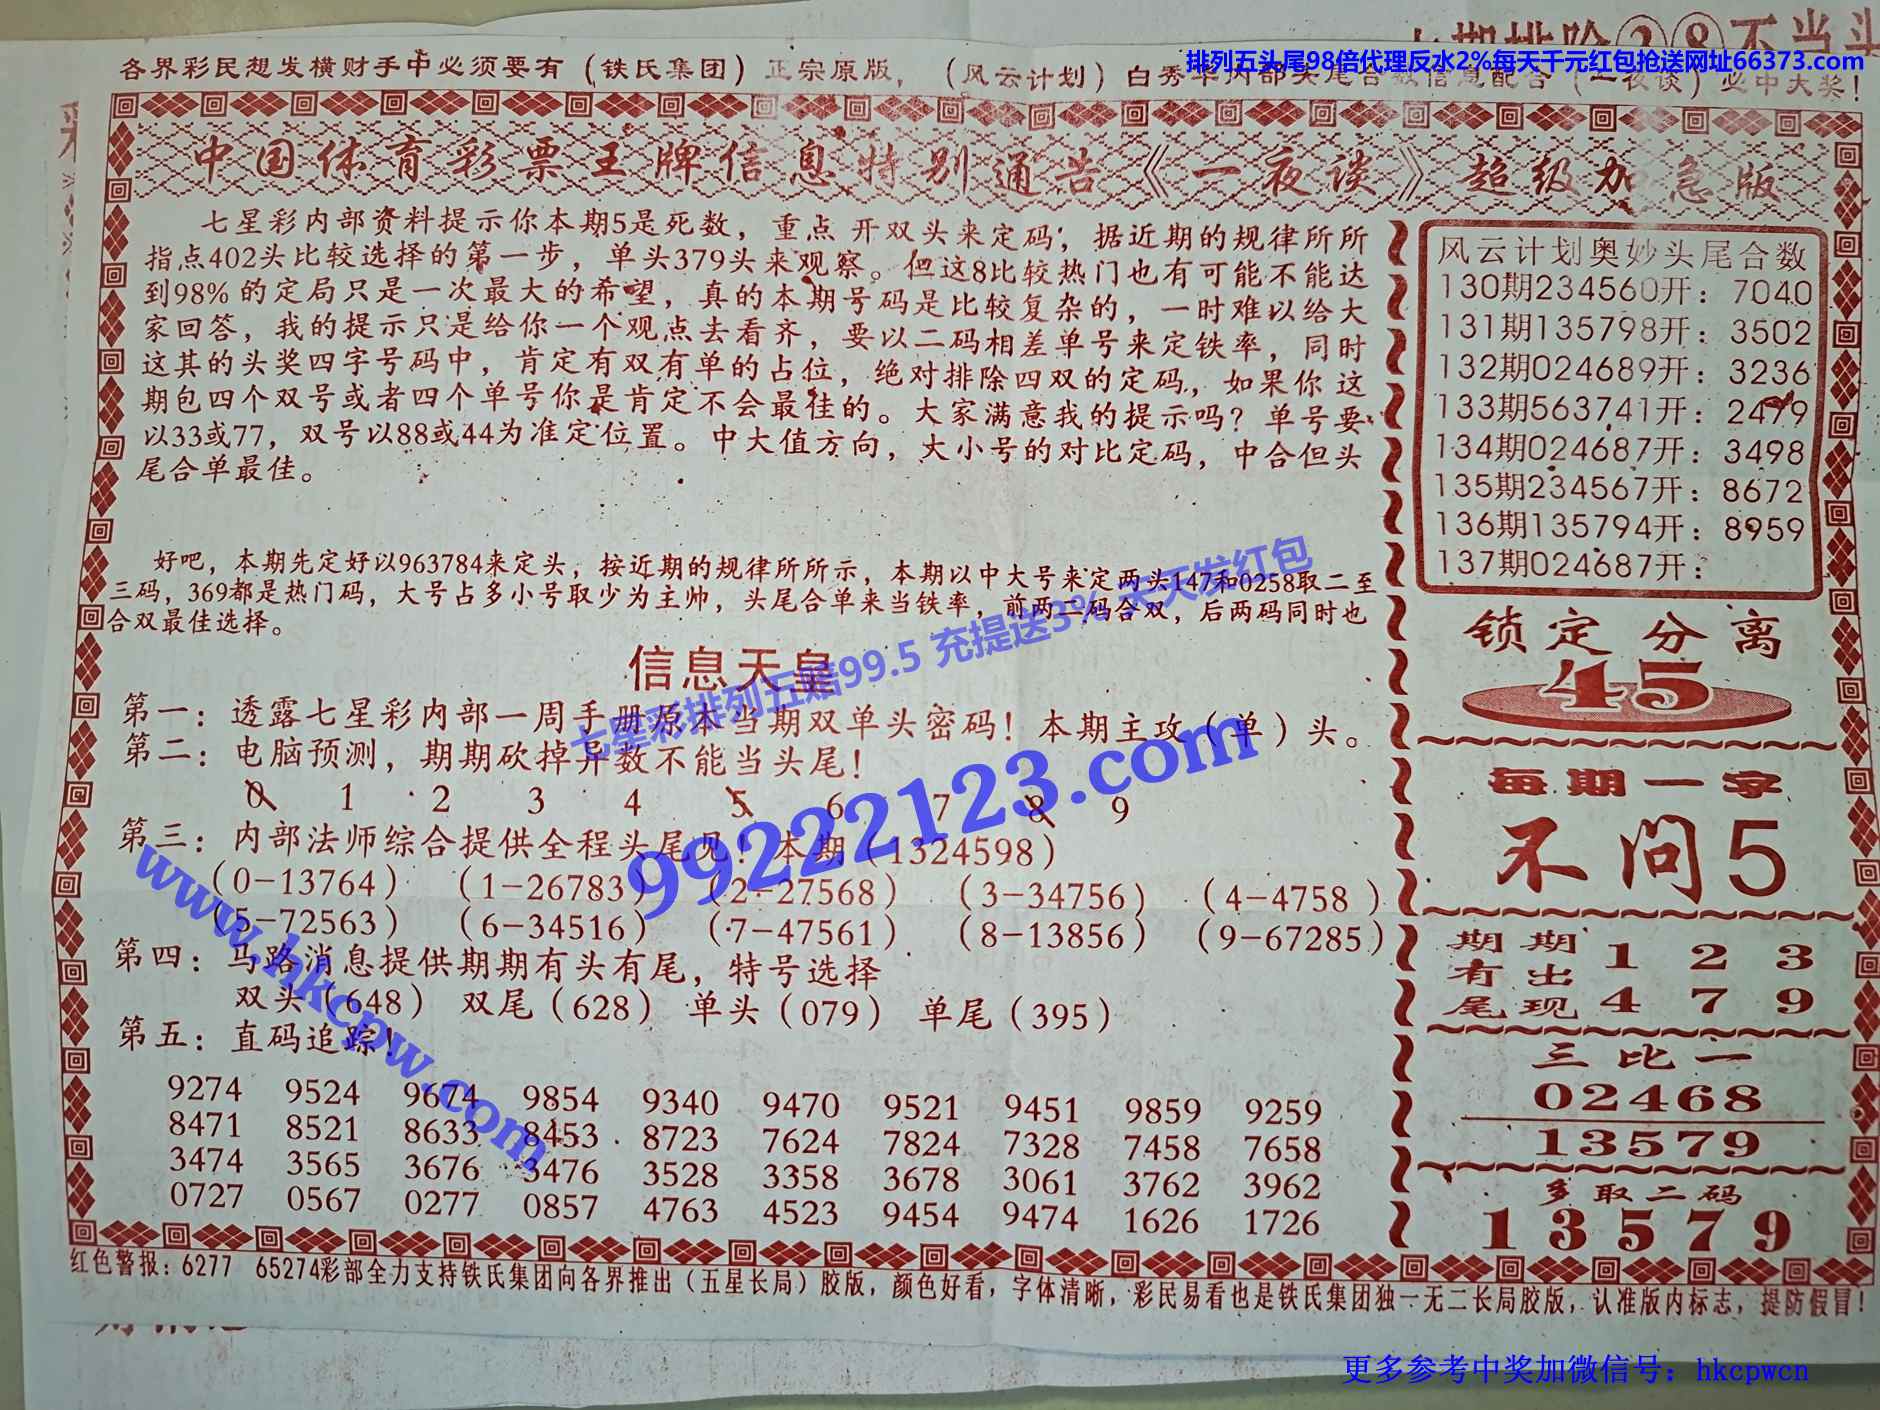 排列五头尾98倍代理反水2%每天千元红包抢送网址66373.com
各界彩民想发横财手中必须要有（铁氏集团）正宗原版，（风云计划）白秀华内部头尾合数信息配合（一夜谈）必中大奖！
中国体育彩票王牌信息特别通告《一夜谈》超级加急版
七星彩内部资料提示你本期5是死数，重点 开双头来定码，据近期的规律所所
指点402头比较选择的第一步，单头379头来观察。但这8比较热门也有可能不能达
到98%的定局只是一次最大的希望，真的本期号码是比较复杂的，一时难以给大
家回答，我的提示只是给你一个观点去看齐，要以二码相差单号来定铁率，同时
这其的头奖四字号码中，肯定有双有单的占位，绝对排除四双的定码，如果你 这
期包四个双号或者四个单号你是肯定不会最佳的。大家满意我的提示吗？单号要
以33或77，双号以88或44为准定位置。中大值方向，大小号的对比定码，中合但头
尾合单最佳。
好吧，本期先定好以963784来定头，按近期的规律所所示，本期以中大号来定两头147和0258取二至
三码，369都是热门码，大号占多小号取少为主帅，头尾合单来当铁率，前两二码合双，后两码同时也
合双最佳选择。
信息天皇
第一：透露七星彩内部一周手册原本当期双单头密码！本期主攻（单）头。
第二：电脑预测，期期砍掉异数不能当头尾！
0 1 2 3 4 5 6 7 8 9
第三：内部法师综合提供全程头尾见！本期（1324598）
（0-13764）（1-26783）（2-27568）（3-34756）（4-4758 ）
（5-72563）（6-34516）（7-47561）（8-13856）（9-67285）
第四：马路消息提供期期有头有尾，特号选择
双头（648） 双尾（628） 单头（079） 单尾（395）
第五：直码追踪！
9274 9524 9674 9854 9340 9470 9521 9451 9859 9259
8471 8521 8633 8453 8723 7624 7824 7328 7458 7658
3474 3565 3676 3476 3528 3358 3678 3061 3762 3962
0727 0567 0277 0857 4763 4523 9454 9474 1626 1726
风云计划奥妙头尾合数
130期234560开：7040
131期135798开：3502
132期024689开：3236
133期563741开：2479
134期024687开：3498
135期234567开：8672
136期135794开：8959
137期024687开：
锁定分离
45
每期一字
不问5
期期 1 2 3
有出
尾现 4 7 9
三比一
02468
13579
多取二码
1 3 5 7 9
红色警报：6277 65274彩部全力支持铁氏集团向各界推出（五星长局）胶版，颜色好看，字体清晰，彩民易看也是铁氏集团独一无二长局胶版，认准版内标志，提防假冒！
七星彩排列五赔99.5 充提送3% 天天发红包
99222123.com
www.hkcpw.com
更多参考中奖加微信号：hkcpwcn